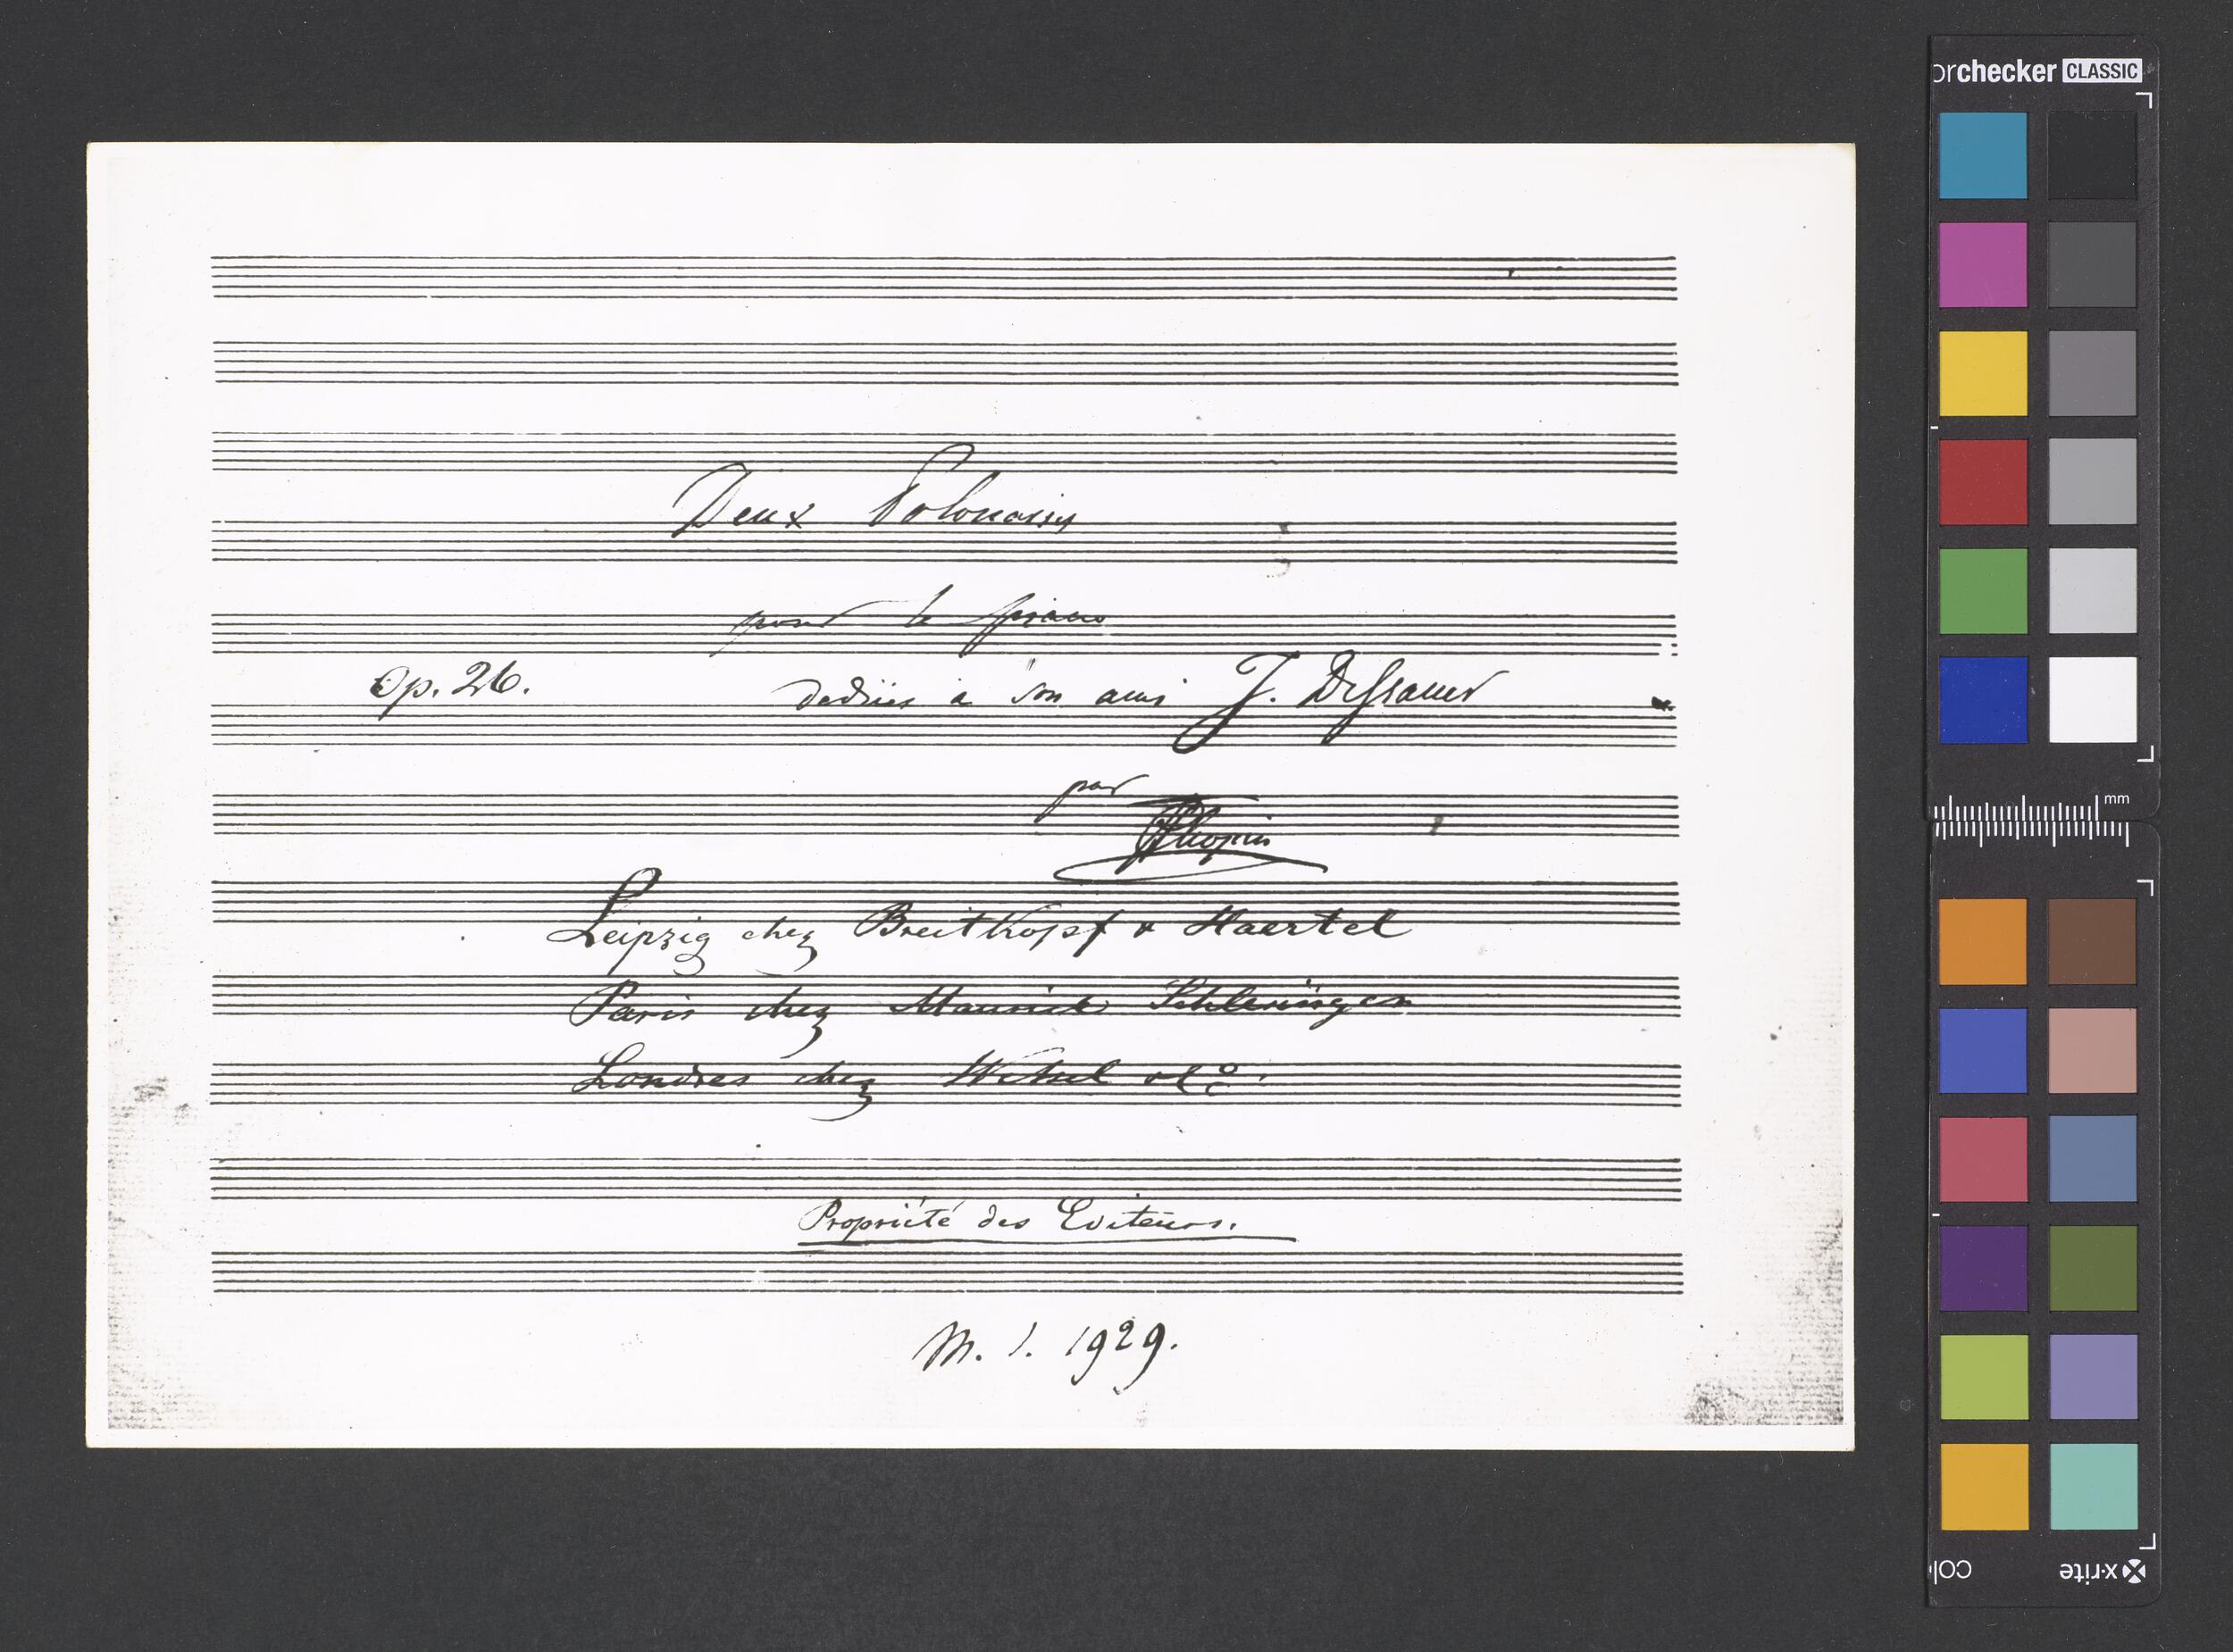 Deux Polonaises
pour le piano
Op. 26.
dediées à son ami J. Dessauer
par
FChopin
Leipzig chez Breitkopf & Haertel
Paris chez Maurice Schlesinger
Londres chez Wessel & Co.
Propriété des Editeurs.
M. S. 1929.
orchecker CLASSIC
mm
x-rite
colo